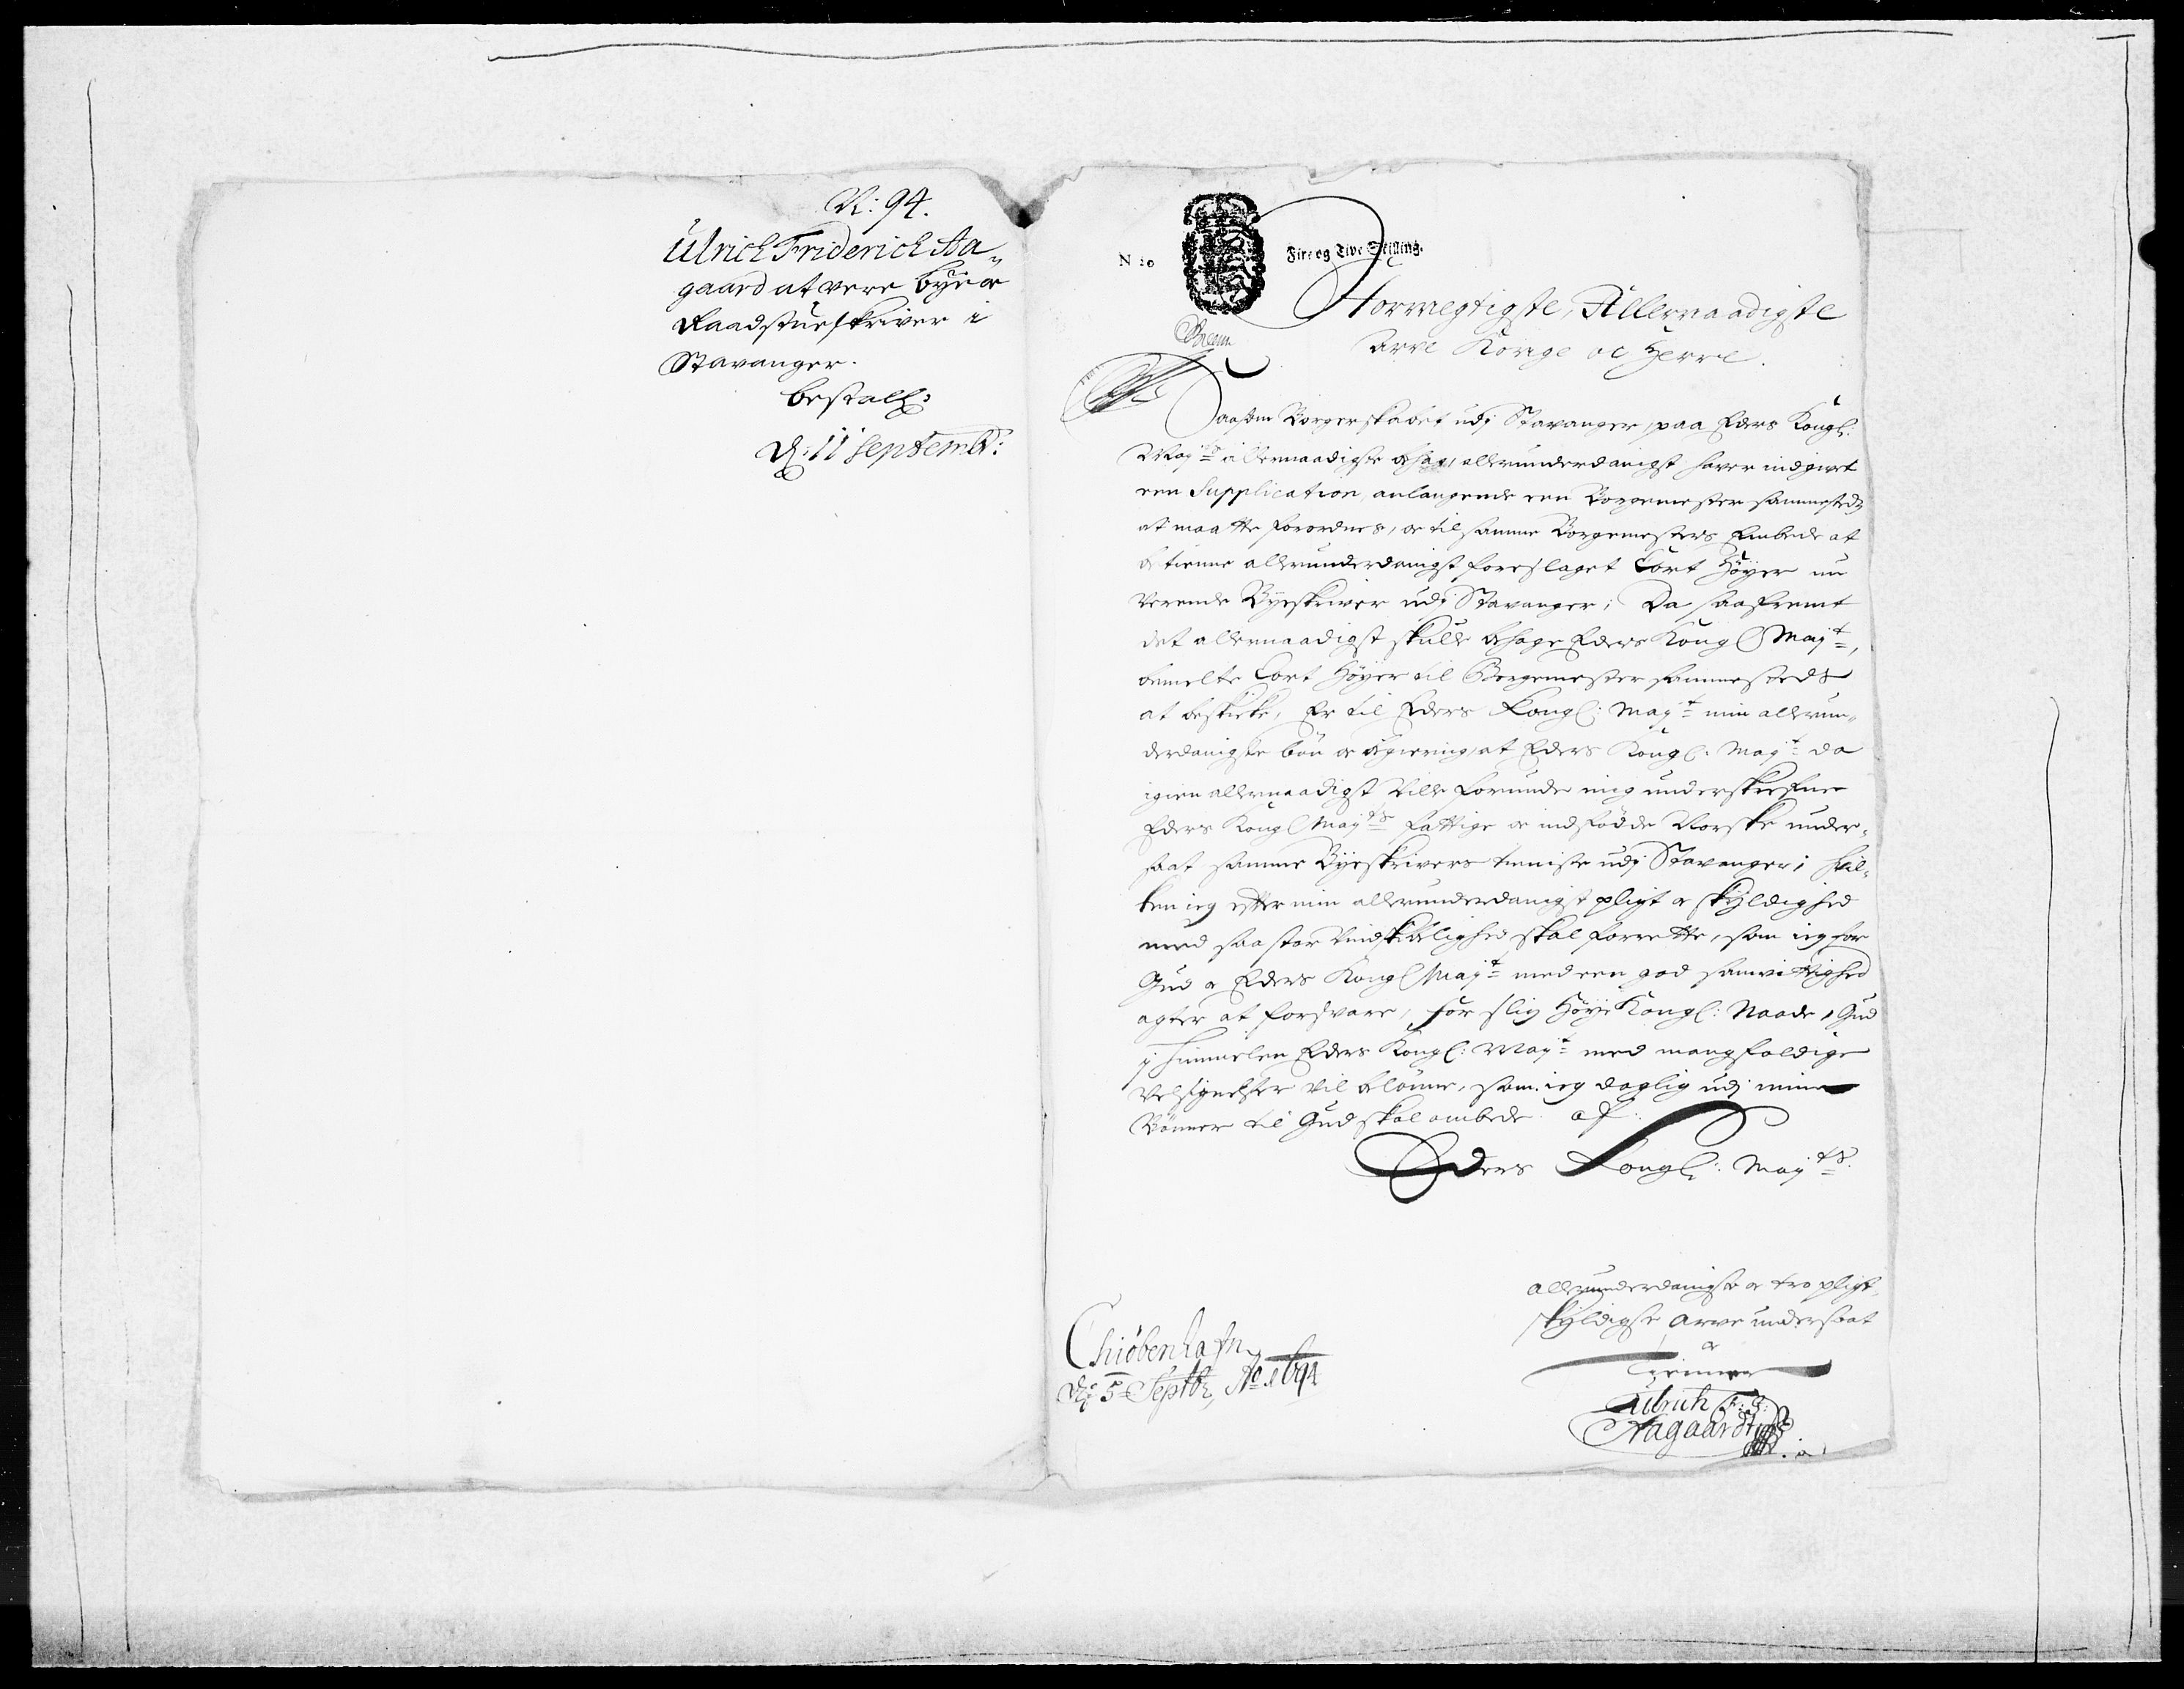 N: 94.
Ulrich Friderich Aa-
gaard at vere Bye oc
Raadstueskriver i
Stavanger.
bestall:
D: 11 Septembr:
N 20
Fire og Tive Skilling.
Stormegtigste, Allernaadigste
Arve Konge oc Herre.
Saasom Borgerskabet udj Stavanger, paa Eders Kongl:
Maj:ts allernaadigste behag, allerunderdanigst haver indgivet
een Supplication, anlangende een Borgemester sammesteds
at maatte forordnes, oc til samme Borgemesters Embede at
betienne allerunderdanigst foreslaget Cort Höyer nu
verende Byeskriver udj Stavanger; Da saafremt
det allernaadigst skulle behage Eders Kongl Maj:t,
bemelte Cort Höyer til Borgemester sammesteds
at beskicke, Er til Eders Kongl: Maj:t min allerun-
derdanigste bön oc begiering, at Eders Kongl: Maj:t da
igien allernaadigst ville forunde mig underskrefne
Eders Kongl Maj:ts fattige oc indfödde Norske under-
saat samme Byeskrivers tieniste udj Stavanger; hvil-
ken ieg efter min allerunderdanigst pligt oc skyldighed
med saa stor Vindskibelighed skal forrette, som ieg for
Gud oc Eders Kongl Maj:t med een god samvittighed
agter at forsvare, for slig Höye Kongl: Naade, Gud
j himmelen Eders Kongl: Maj:t med mangfoldige
velsignelser vil belönne, som ieg daglig udj mine
Bönner til Gud skal ombede af
Eders Kongl: Maj:ts
allerunderdanigste oc tro pligt
skyldigste arve undersaat
oc
Tienner
Ulrich F: 
Aagaardt
Chiöbenhafn
D: 5 Septbr, Ao 1694